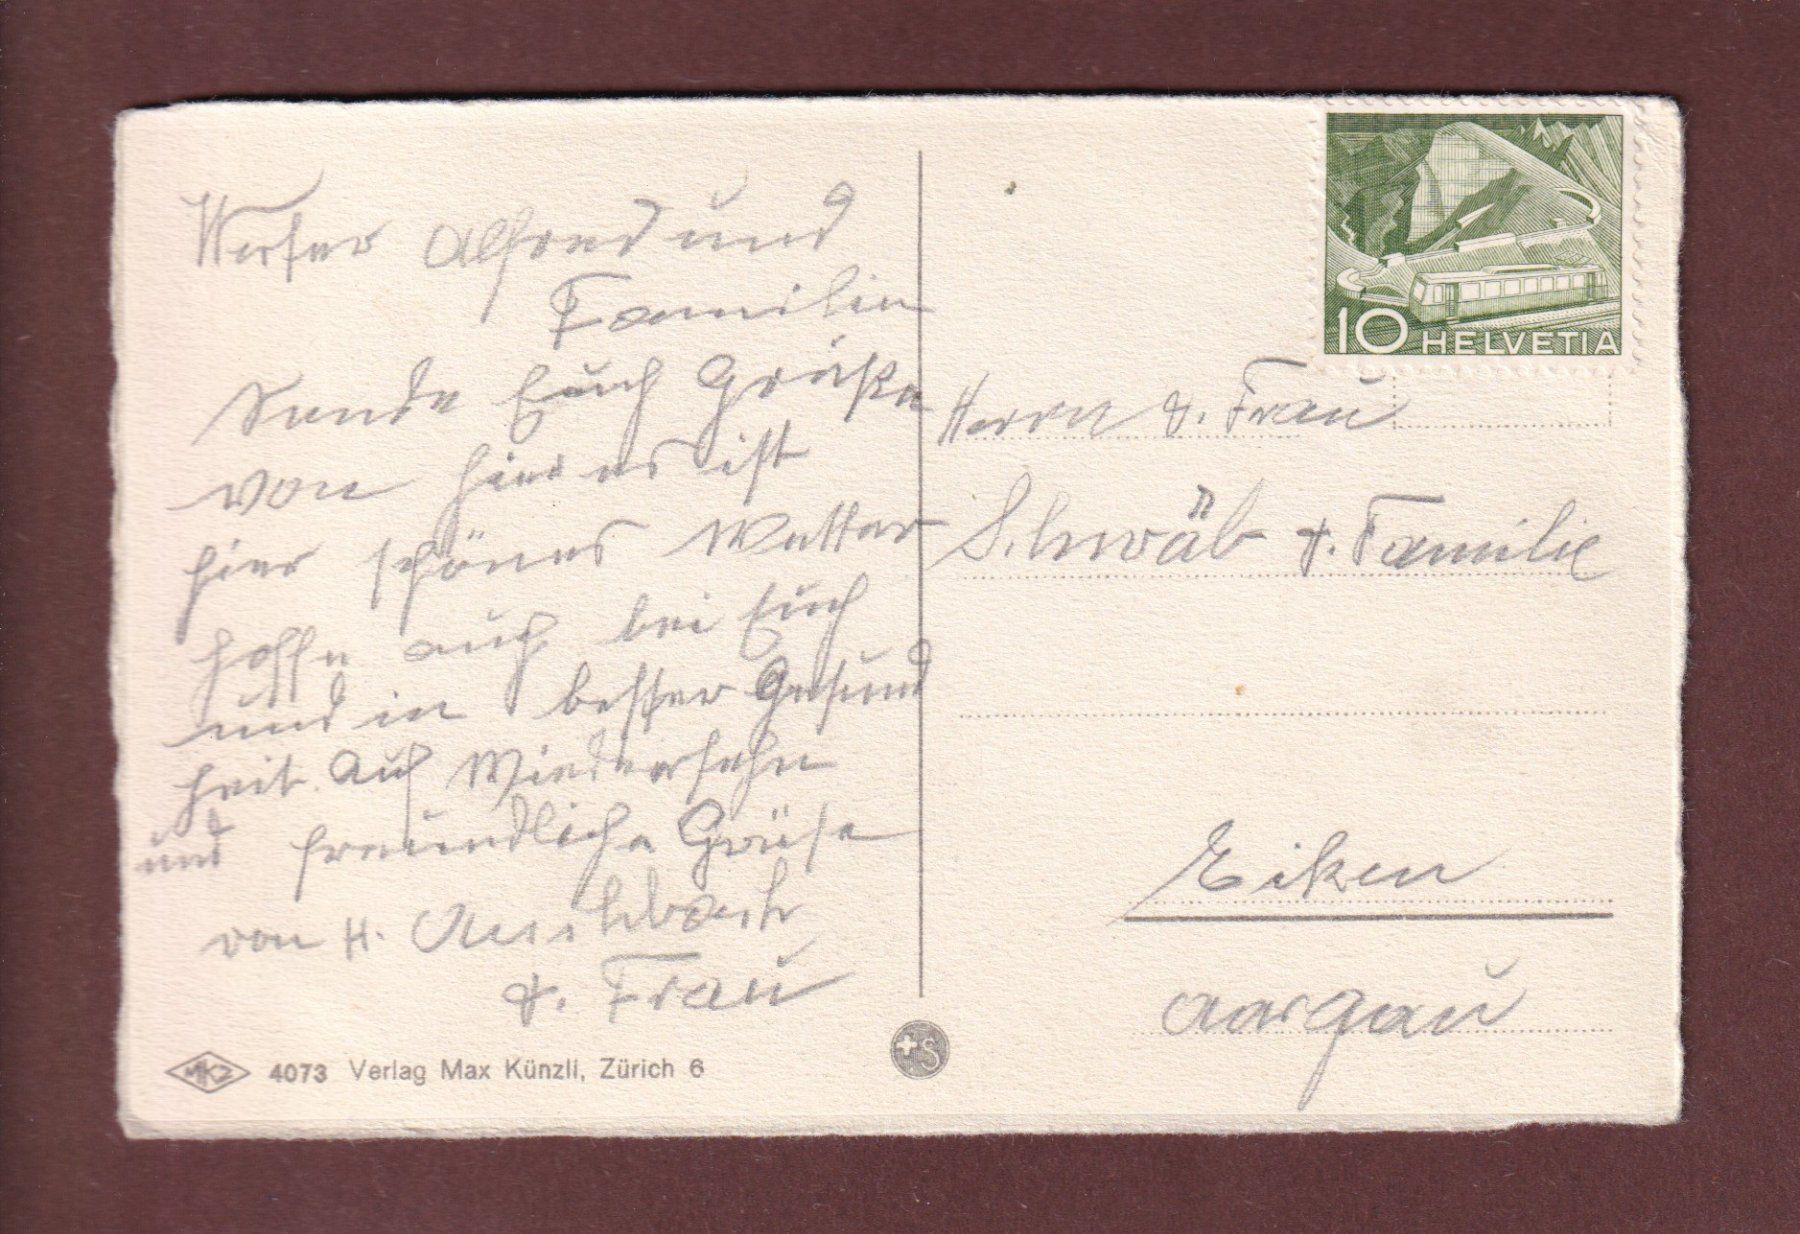 Werter Alfred und
Familie
Sende Euch Grüße
von hier es ist
hier schönes Wetter
hoffe auch bei Euch
und in bester Gesund
heit. Auf Wiedersehn
und freundliche Grüße
von H.
& Frau
4073 Verlag Max Künzli, Zürich 6
10 HELVETIA
Herrn & Frau
Schwäb & Familie
Eiken
Aargau